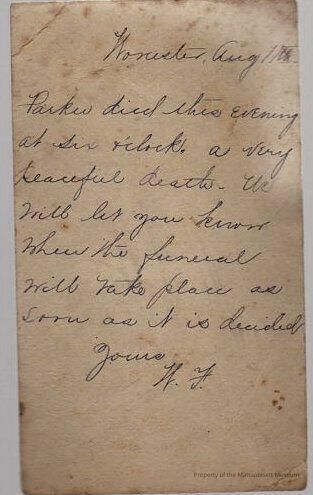 Worcester, Aug 7th.
Parker died this evening
at six o'clock. a very
peaceful death. We
will let you know
when the funeral
will take place as
soon as it is decided
Yours
W. F.
Property of the Mattapoisett Museum